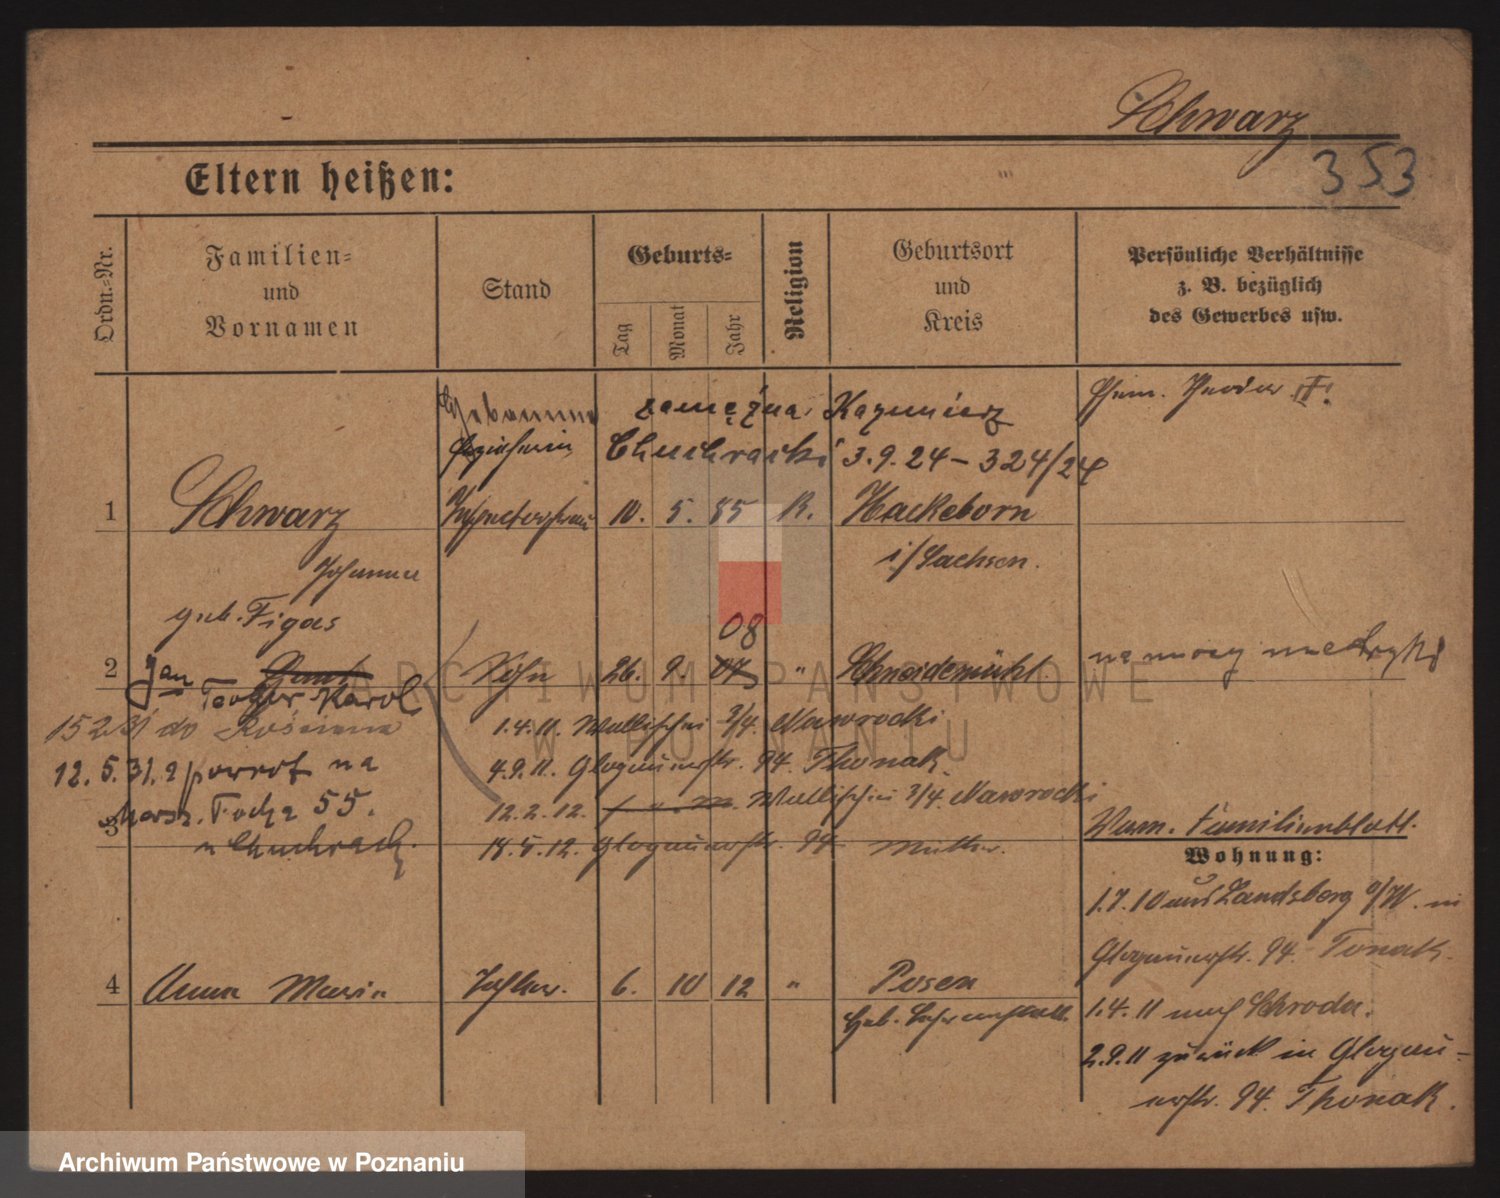 Schwarz
353
Eltern heißen:
Ordn.-Nr.
Familien-
und
Vornamen
Stand
Geburts-
Tag
Monat
Jahr
Religion
Geburtsort
und
Kreis
Persönliche Verhältnisse
z. B. bezüglich
des Gewerbes usw.
zamężna Kazimierz
Chuchracki 3.9.24 – 324/24
1 Schwarz 10. 5. 85 K. Hackeborn
i/Sachsen.
Johanna
geb. Figas
08
2 Jan Sohn 26. 9. 07 " Schneidemühl.
Teodor Karol
1.4.11. Wallischei 3/4. Nawrocki
15 2 31 do Kościana
4.9.11. Glogauerstr. 94. Thonak.
12. 5. 31. z powrot na
12.2.12. Wallischei 3/4 Nawrocki
Marsz. Focha 55.
3
18.5.12. Glogauerstr. 94. Mutter.
u Chuchrack.
Familienblatt.
Wohnung:
1.7.10 aus Landsberg a/W. in
Glogauerstr. 94. Tonak.
4 Anna Maria Tochter. 6. 10 12 " Posen
1.4.11 nach Schroda.
2.9.11 zurück in Glogau-
erstr. 94. Thonak.
ARCHIWUM PAŃSTWOWE
W POZNANIU
Archiwum Państwowe w Poznaniu